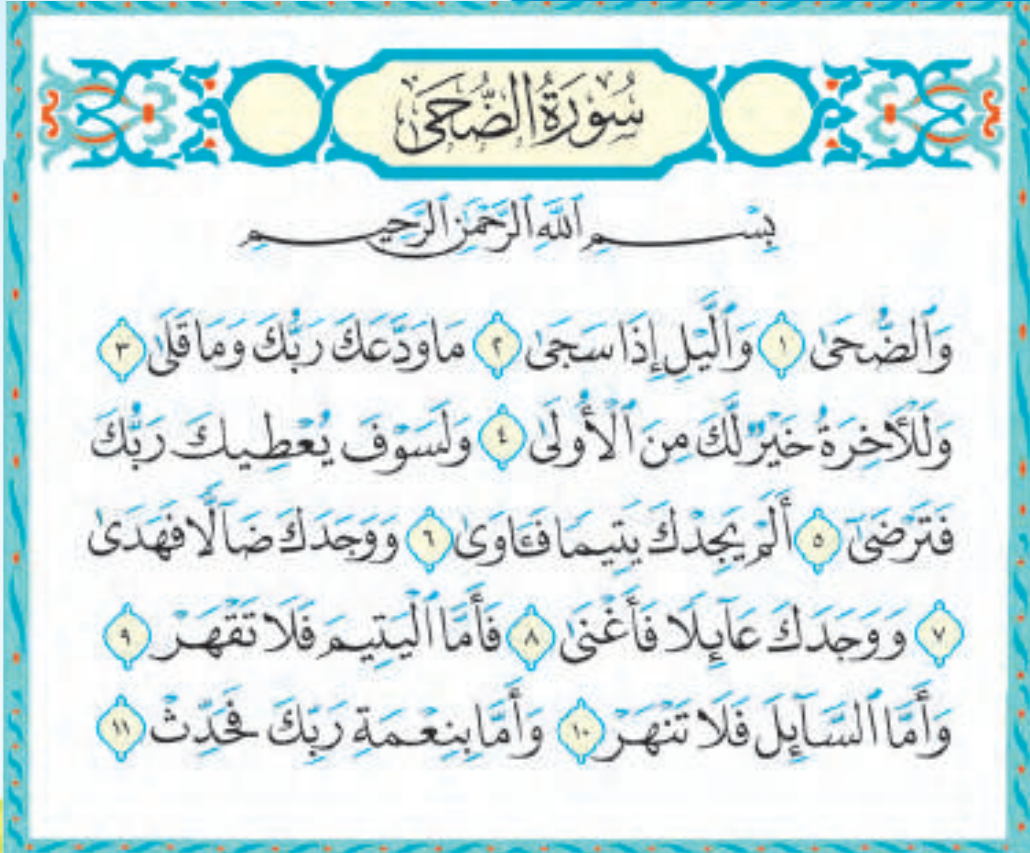 سُورَةُ الضُّحَى
بِسْمِ ٱللَّهِ ٱلرَّحْمَٰنِ ٱلرَّحِيمِ
وَٱلضُّحَىٰ ١ وَٱلَّيْلِ إِذَا سَجَىٰ ٢ مَا وَدَّعَكَ رَبُّكَ وَمَا قَلَىٰ ٣
وَلَلْأَخِرَةُ خَيْرٌ لَّكَ مِنَ ٱلْأُولَىٰ ٤ وَلَسَوْفَ يُعْطِيكَ رَبُّكَ
فَتَرْضَىٰٓ ٥ أَلَمْ يَجِدْكَ يَتِيمًا فَـَٔاوَىٰ ٦ وَوَجَدَكَ ضَآلًّا فَهَدَىٰ
٧ وَوَجَدَكَ عَآئِلًا فَأَغْنَىٰ ٨ فَأَمَّا ٱلْيَتِيمَ فَلَا تَقْهَرْ ٩
وَأَمَّا ٱلسَّآئِلَ فَلَا تَنْهَرْ ١٠ وَأَمَّا بِنِعْمَةِ رَبِّكَ فَحَدِّثْ ١١